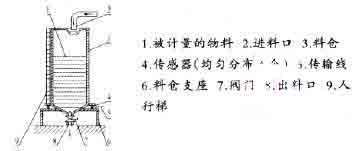 1.被计量的物料 2.进料口 3.料仓
4.传感器(均匀分布 个) 5.传输线
6.料仓支座 7.阀门 8.出料口 9.人
行梯